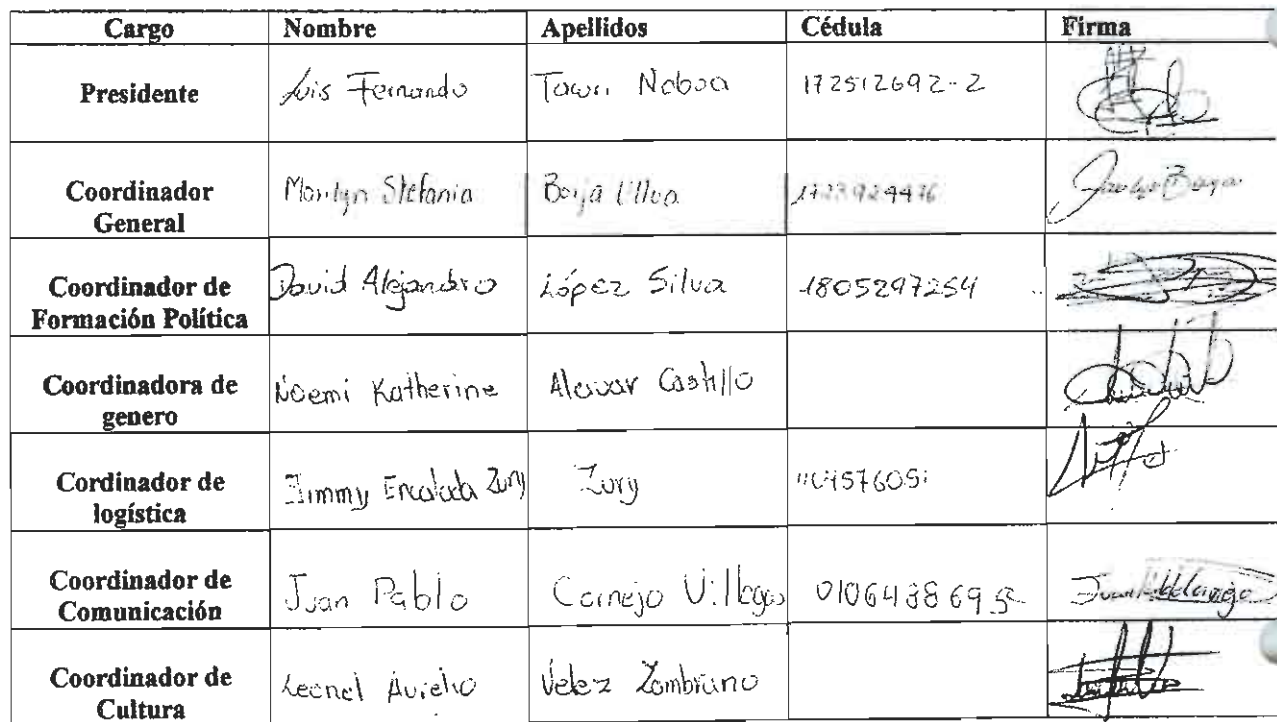 Cargo Nombre Apellidos Cédula Firma
Presidente Luis Fernando Noboa 172512692-2
Coordinador
General Marilyn Stefania Borja Ulloa
Coordinador de
Formación Política David Alejandro López Silva 1805297254
Coordinadora de
genero Noemi Katherine Castillo
Cordinador de
logística Jimmy Encalada Zury Zury
Coordinador de
Comunicación Juan Pablo Cornejo Villegas
Coordinador de
Cultura Leonel Aurelio Velez Zambrano